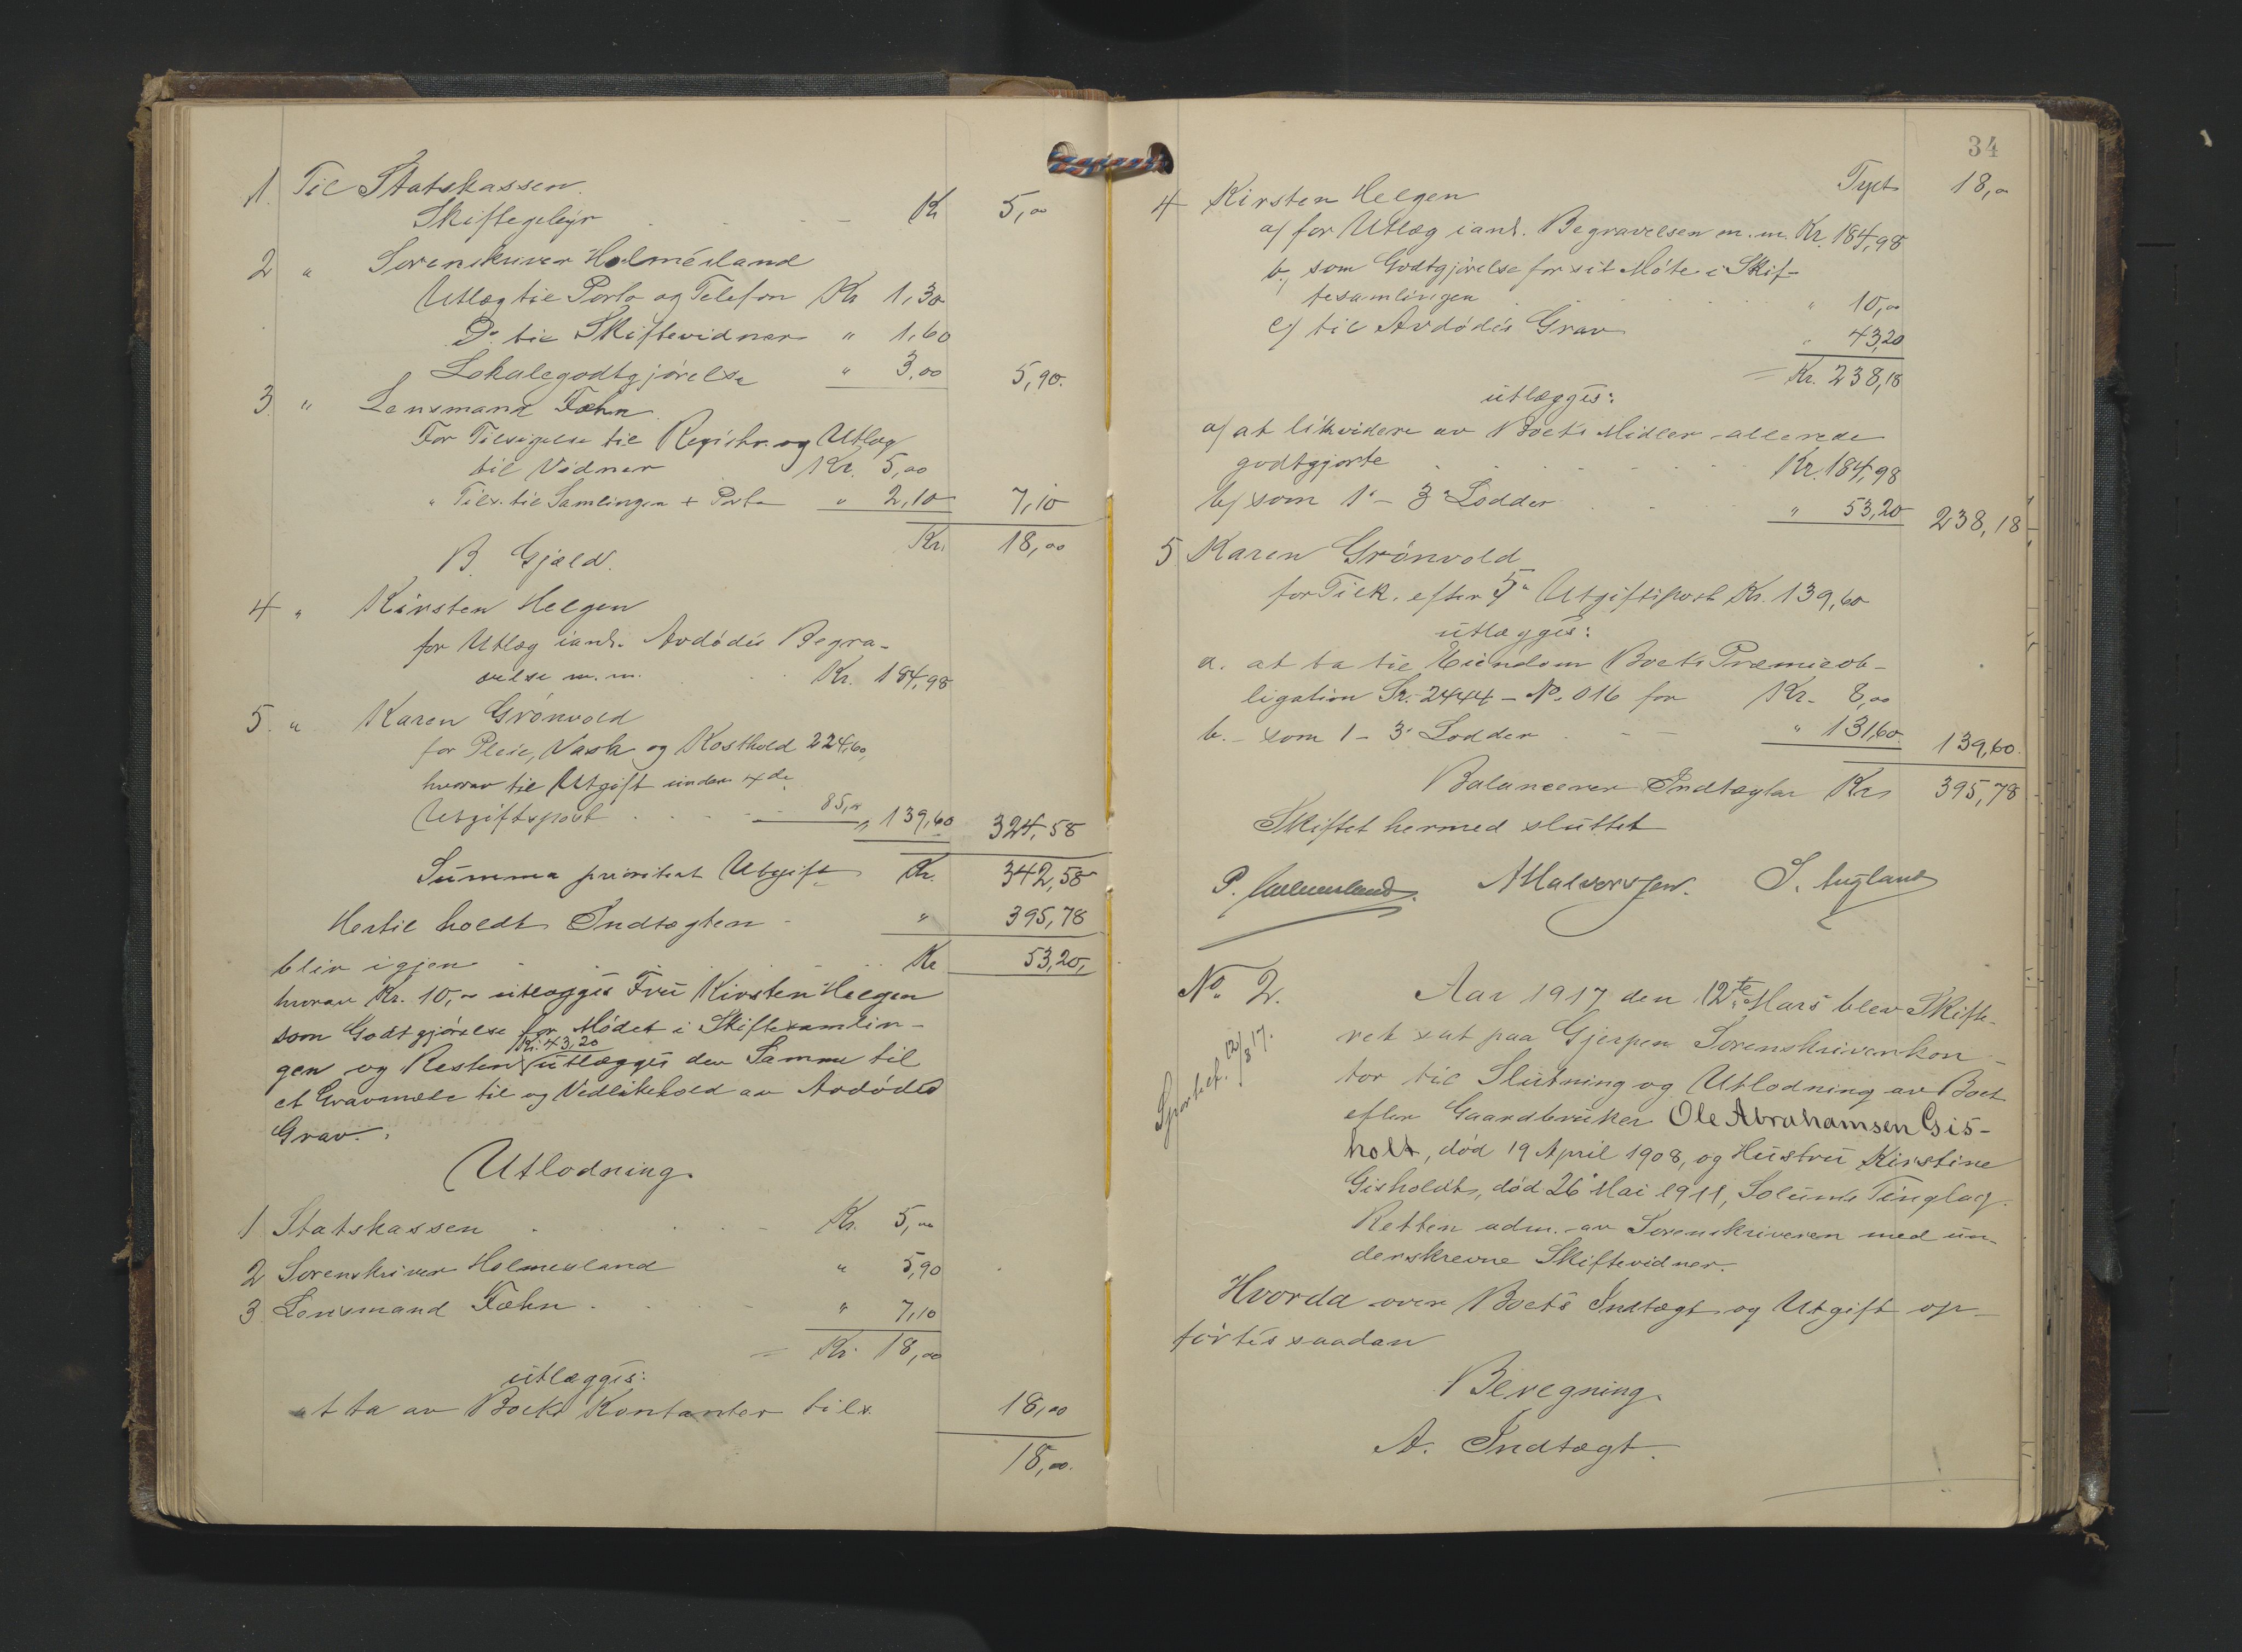 1. Til Statskassen.
Skiftegebyr . . - - Kr 5,00
2 " Sorenskriver Holmesland
Utlæg til Porto og Telefon Kr 1,30
Do til Skiftevidner " 1,60
Lokalegodtgjörelse " 3,00 5,90.
3. " Lensmand Fæhn
For Tilsigelse til Registr. og Utlæg
til Vidner Kr. 5,00
" Tils. til Samlingen + Porto " 2,10 7,10
Kr. 18,00
B. Gjæld.
4 " Kirsten Helgen
for Utlæg ianl. Avdödes Begra-
velse m.m. . . Kr. 184,98
5. " Karen Grönvold
for Pleie, Vask og Kosthold 224,60,
hvorav til Utgift under 4de
Utgiftspost . . . - 85,00 " 139,60 324,58
Summa prioritert Utgift Kr. 342,58
Hertil holdt Indtægten - " 395,78
blir igjen . . . . Kr 53,20,
hvorav Kr. 10,00 utlægges Fru Kirsten Helgen
som Godtgjörelse for Mödet i Skiftesamlin-
Kr. 43,20
gen og Resten utlægges den Samme til
et Gravmæle til og Vedlikehold av Avdödes
Grav.
Utlodning.
1 Statskassen . . . - Kr. 5,00
2 Sorenskriver Holmesland " 5,90
3 Lensmand Fæhn . . . - " 7,10
= Kr. 18,00
utlægges:
at ta av Boets Kontanter tils. 18,00
18,00.
34
Tyct 18,00
4 Kirsten Helgen
a/ for Utlæg ianl. Begravelsen m.m. Kr. 184,98
b., som Godtgjörelse for sit Möte i Skif-
tesamlingen . . . . " 10,00
c/ til Avdödes Grav " 43,20
= Kr. 238,18
utlægges:
a/ at likvidere av Boets Midler allerede
godtgjorte . . . - - - Kr. 184,98
b/ som 1' - 3' Lodder . . " 53,20 238,18
5 Karen Grönvold
for Tilk. efter 5te Utgiftspost Kr. 139,60
utlægges:
a. at ta til Eiendom Boets Præmieob-
ligation Sr. 2444 - No. 016 for Kr. 8,00
b. - som 1 - 3' Lodder . - - " 131,60 139,60.
Balancerer Indtægter Kr. 395,78
Skiftet hermed sluttet
P. Holmesland. A Halvorsen. S. Augland
No. 2. Aar 1917 den 12te Mars blev Skifte-
Sportlet. 12/3 17.
ret sat paa Gjerpen Sorenskriverkon-
tor til Slutning og Utlodning av Boet
efter Gaardbruker Ole Abrahamsen Gis-
holt, död 19 April 1908, og Hustru Kirstine
Gisholdt, död 26' Mai 1911, Solums Tinglag.
Retten adm. av Sorenskriveren med un-
derskrevne Skiftevidner.
Hvorda over Boets Indtægt og Utgift op-
förtes saadan
Beregning.
A. Indtægt.